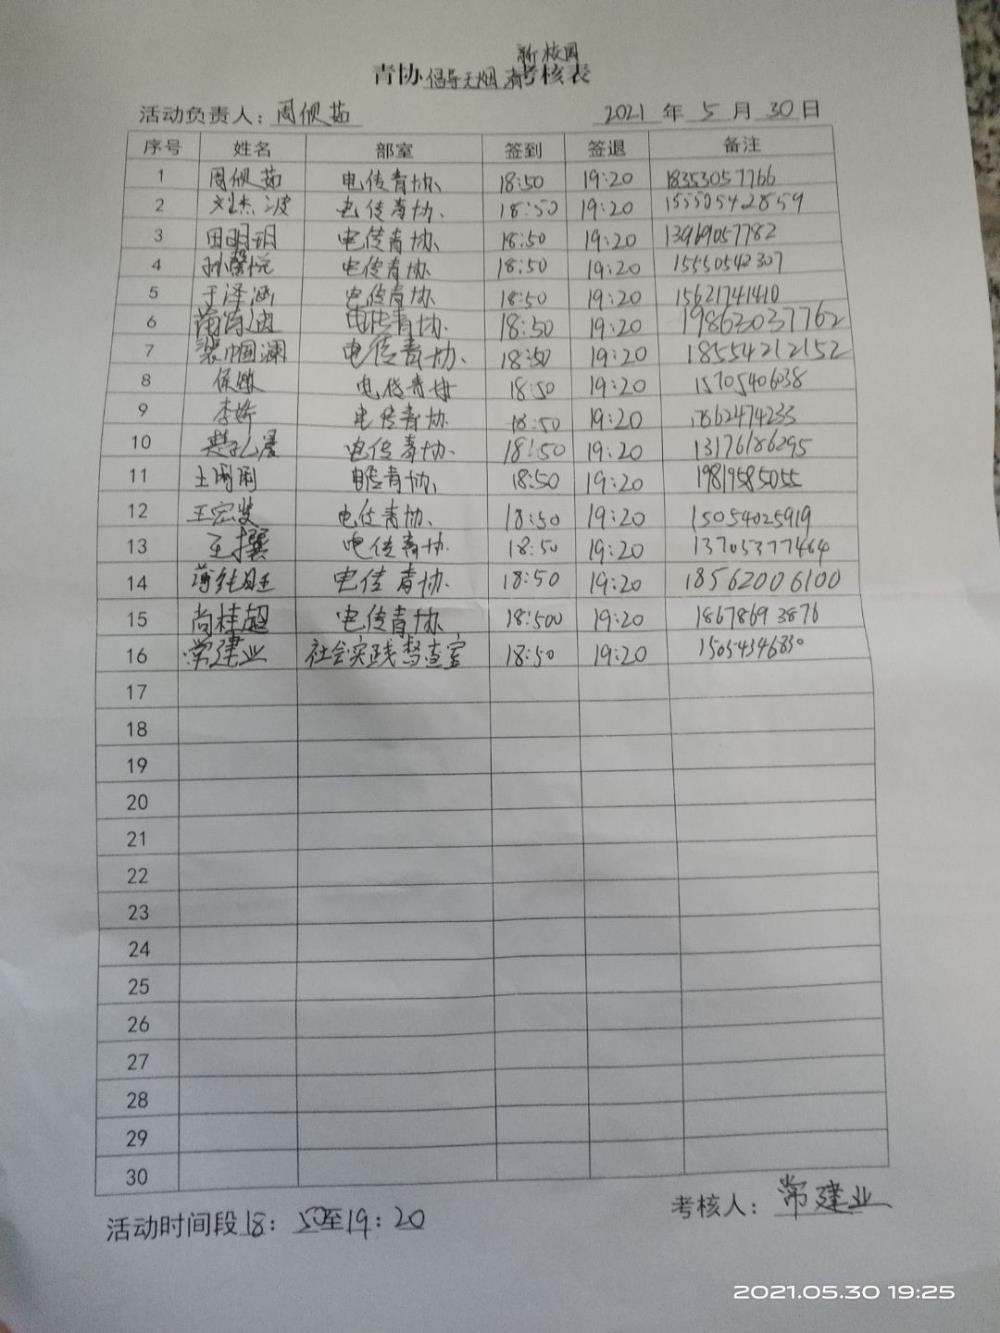 新校园
青协倡导无烟清考核表
活动负责人：周佩茹 2021 年 5 月 30 日
序号 姓名 部室 签到 签退 备注
1 周佩茹 电传青协 18:50 19:20 18353057766
2 刘杰波 电传青协 18:50 19:20 15550542859
3 田明玥 电传青协 18:50 19:20 13969057782
4 孙馨悦 电传青协 18:50 19:20 15550542307
5 于泽涵 电传青协 18:50 19:20 15621741410
6 电传青协 18:50 19:20 19863037762
7 裴帼澜 电传青协 18:50 19:20 18554212152
8 侯敏 电传青协 18:50 19:20 15705406038
9 李娇 电传青协 18:50 19:20 17862474233
10 电传青协 18:50 19:20 13176186295
11 王雨雨 电传青协 18:50 19:20 19819585055
12 王宏斐 电传青协 18:50 19:20 15054025919
13 王撰 电传青协 18:50 19:20 13705377464
14 薄纯钰 电传青协 18:50 19:20 18562006100
15 尚桂超 电传青协 18:500 19:20 18678693876
16 常建业 社会实践督查室 18:50 19:20 15054346830
17
18
19
20
21
22
23
24
25
26
27
28
29
30
活动时间段18：50至19：20 考核人：常建业
2021.05.30 19:25